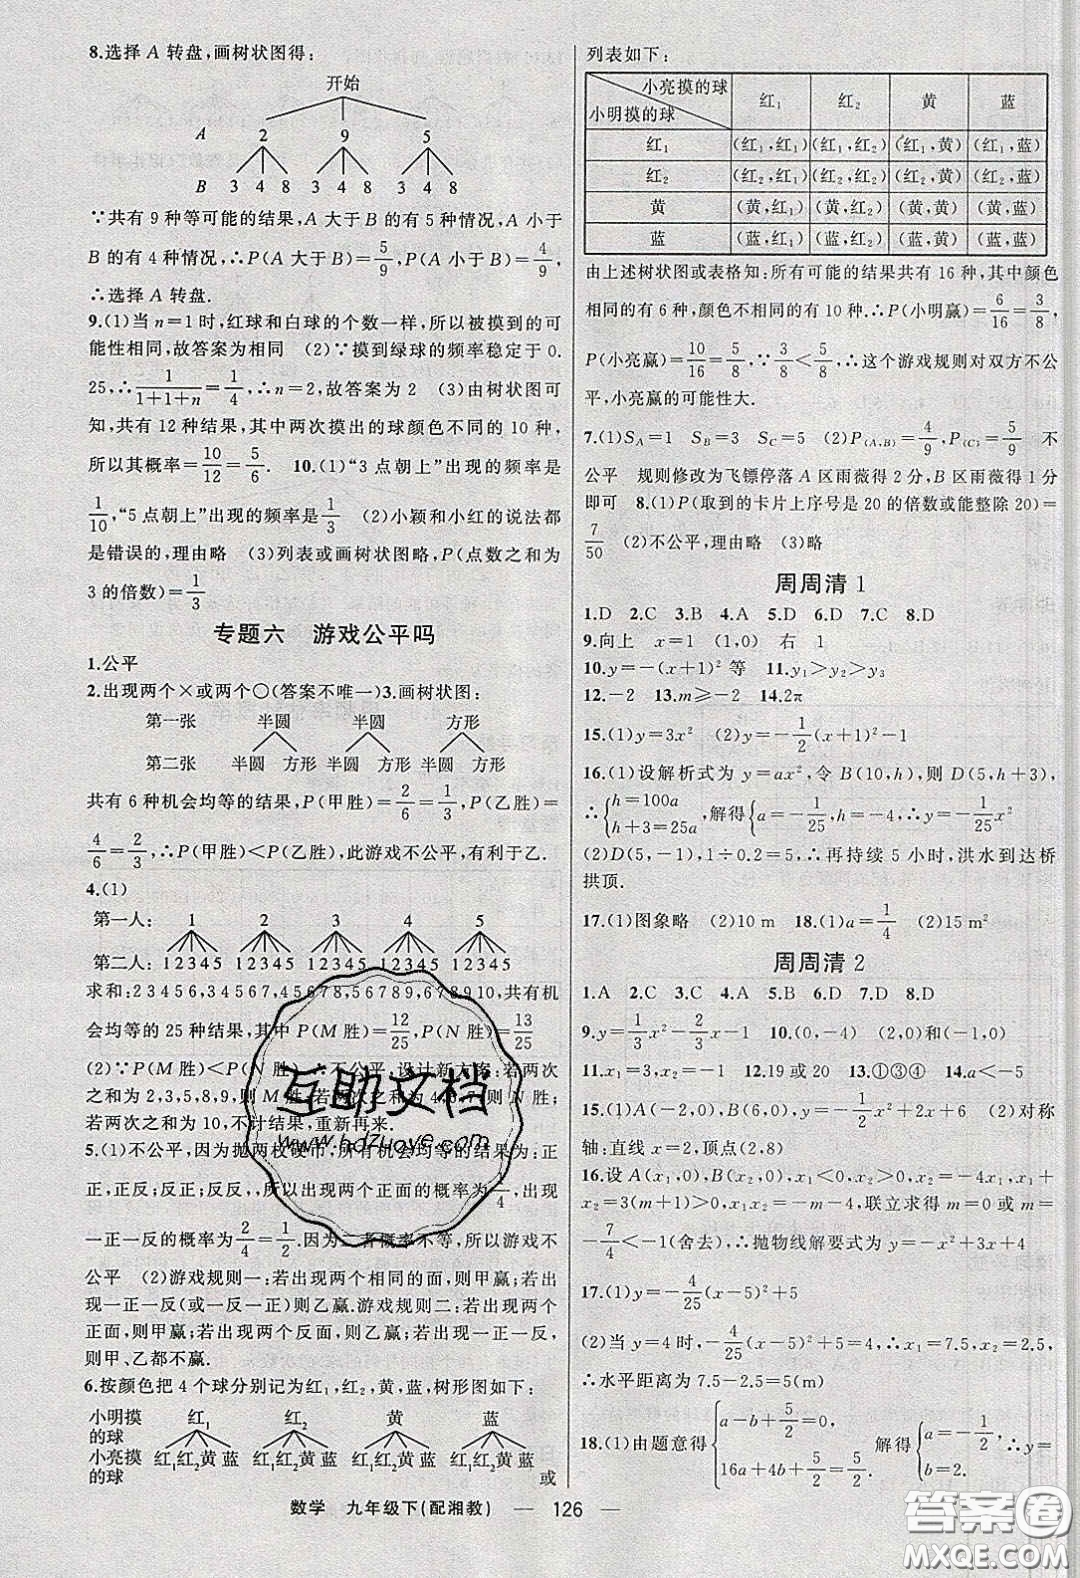 8.选择 A 转盘,画树状图得:
开始
A 2 9 5
B 3 4 8 3 4 8 3 4 8
∵共有 9 种等可能的结果,A 大于 B 的有 5 种情况,A 小于
B 的有 4 种情况,∴P(A 大于 B)=5/9,P(A 小于 B)=4/9,
∴选择 A 转盘.
9.(1)当 n=1 时,红球和白球的个数一样,所以被摸到的可
能性相同,故答案为相同 (2)∵摸到绿球的频率稳定于 0.
25,∴1/(1+1+n)=1/4,∴n=2,故答案为 2 (3)由树状图可
知,共有 12 种结果,其中两次摸出的球颜色不同的 10 种,
所以其概率=10/12=5/6 10.(1)“3 点朝上”出现的频率是
1/10,“5 点朝上”出现的频率是1/3 (2)小颖和小红的说法都
是错误的,理由略 (3)列表或画树状图略,P(点数之和为
3 的倍数)=1/3
专题六 游戏公平吗
1.公平
2.出现两个×或两个○(答案不唯一)3.画树状图:
第一张 半圆 半圆 方形
第二张 半圆 方形 半圆 方形 半圆 半圆
共有 6 种机会均等的结果,P(甲胜)=2/6=1/3,P(乙胜)=
4/6=2/3,∴P(甲胜)<P(乙胜),此游戏不公平,有利于乙.
4.(1)
第一人: 1 2 3 4 5
第二人: 12345 12345 12345 12345 12345
求和:23456,34567,45678,56789,678910,共有机
会均等的 25 种结果,其中 P(M 胜)=12/25,P(N 胜)=13/25
(2)∵P(M 胜)<P(N 胜),∴不公平;设计新方案:若两次
之和为 2,3,5,8,9,则 M 胜;若两次之和为 4,6,7,则 N 胜;
若两次之和为 10,不计结果,重新再来.
5.(1)不公平,因为抛两枚硬币,所有机会均等的结果为:正
正,正反,反正,反反,所以出现两个正面的概率为1/4,出现
一正一反的概率为2/4=1/2.因为二者概率不等,所以游戏不
公平 (2)游戏规则一:若出现两个相同的面,则甲赢;若出
现一正一反(或一反一正)则乙赢.游戏规则二:若出现两个
正面,则甲赢;若出现两个反面,则乙赢;若出现一正一反,
则甲、乙都不赢.
6.按颜色把 4 个球分别记为红₁,红₂,黄,蓝,树形图如下:
小明摸的球 红₁ 红₂ 黄 蓝
小亮摸的球 红₁红₂黄 蓝 红₁红₂黄 蓝 红₁红₂黄 蓝 红₁红₂黄 蓝 或
列表如下:
小亮摸的球 小明摸的球 红₁ 红₂ 黄 蓝
红₁ (红₁,红₁) (红₁,红₂) (红₁,黄) (红₁,蓝)
红₂ (红₂,红₁) (红₂,红₂) (红₂,黄) (红₂,蓝)
黄 (黄,红₁) (黄,红₂) (黄,黄) (黄,蓝)
蓝 (蓝,红₁) (蓝,红₂) (蓝,黄) (蓝,蓝)
由上述树状图或表格知:所有可能的结果共有 16 种,其中颜色
相同的有 6 种,颜色不相同的有 10 种.∴P(小明赢)=6/16=3/8,
P(小亮赢)=10/16=5/8,∵3/8<5/8,∴这个游戏规则对双方不公
平,小亮赢的可能性大.
7.(1)S_A=1 S_B=3 S_C=5 (2)P(A,B)=4/9,P(C)=5/9 不
公平 规则修改为飞镖停落 A 区雨薇得 2 分,B 区雨薇得 1 分
即可 8.(1)P(取到的卡片上序号是 20 的倍数或能整除 20)=
7/50 (2)不公平,理由略 (3)略
周周清 1
1.D 2.C 3.B 4.A 5.D 6.D 7.C 8.D
9.向上 x=1 (1,0) 右 1
10.y=-(x+1)² 等 11.y₁>y₂>y₃
12.-2 13.m≥-2 14.2π
15.(1)y=3x² (2)y=-1/2(x+1)²-1
16.(1)设解析式为 y=ax²,令 B(10,h),则 D(5,h+3),
∴{h=100a h+3=25a,解得{a=-1/25,h=-4,∴y=-1/25x²
(2)D(5,-1),1÷0.2=5,∴再持续 5 小时,洪水到达桥
拱顶.
17.(1)图象略 (2)10 m 18.(1)a=1/4 (2)15 m²
周周清 2
1.A 2.C 3.C 4.A 5.B 6.D 7.D 8.D
9.y=1/3x²-2/3x-1 10.(0,-4) (2,0)和(-1,0)
11.x₁=3,x₂=-1 12.19 或 20 13.①③④ 14.a<-5
15.(1)A(-2,0),B(6,0),y=-1/2x²+2x+6 (2)对称
轴:直线 x=2,顶点(2,8)
16.设 A(x₁,0),B(x₂,0),x₁<0,x₂>0,∵x₂=-4x₁,x₁+
x₂=3(m+1)>0,x₁x₂=-m-4,联立求得 m=0 或 m=
-7/4<-1(舍去),∴抛物线解要式为 y=-x²+3x+4
17.(1)y=-4/25(x-5)²+5
(2)当 y=4 时,-4/25(x-5)²+5=4,∴x=7.5,x=2.5,
∴水平距离为 7.5-2.5=5(米)
18.(1)由题意得{a-b+5/2=0, 16a+4b+5/2=5/2, 解得{a=-1/2, b=2. ∴y
数学 九年级下(配湘教) — 126 —
互助文档
www.hdzuoye.com
答案圈
MXQE.COM